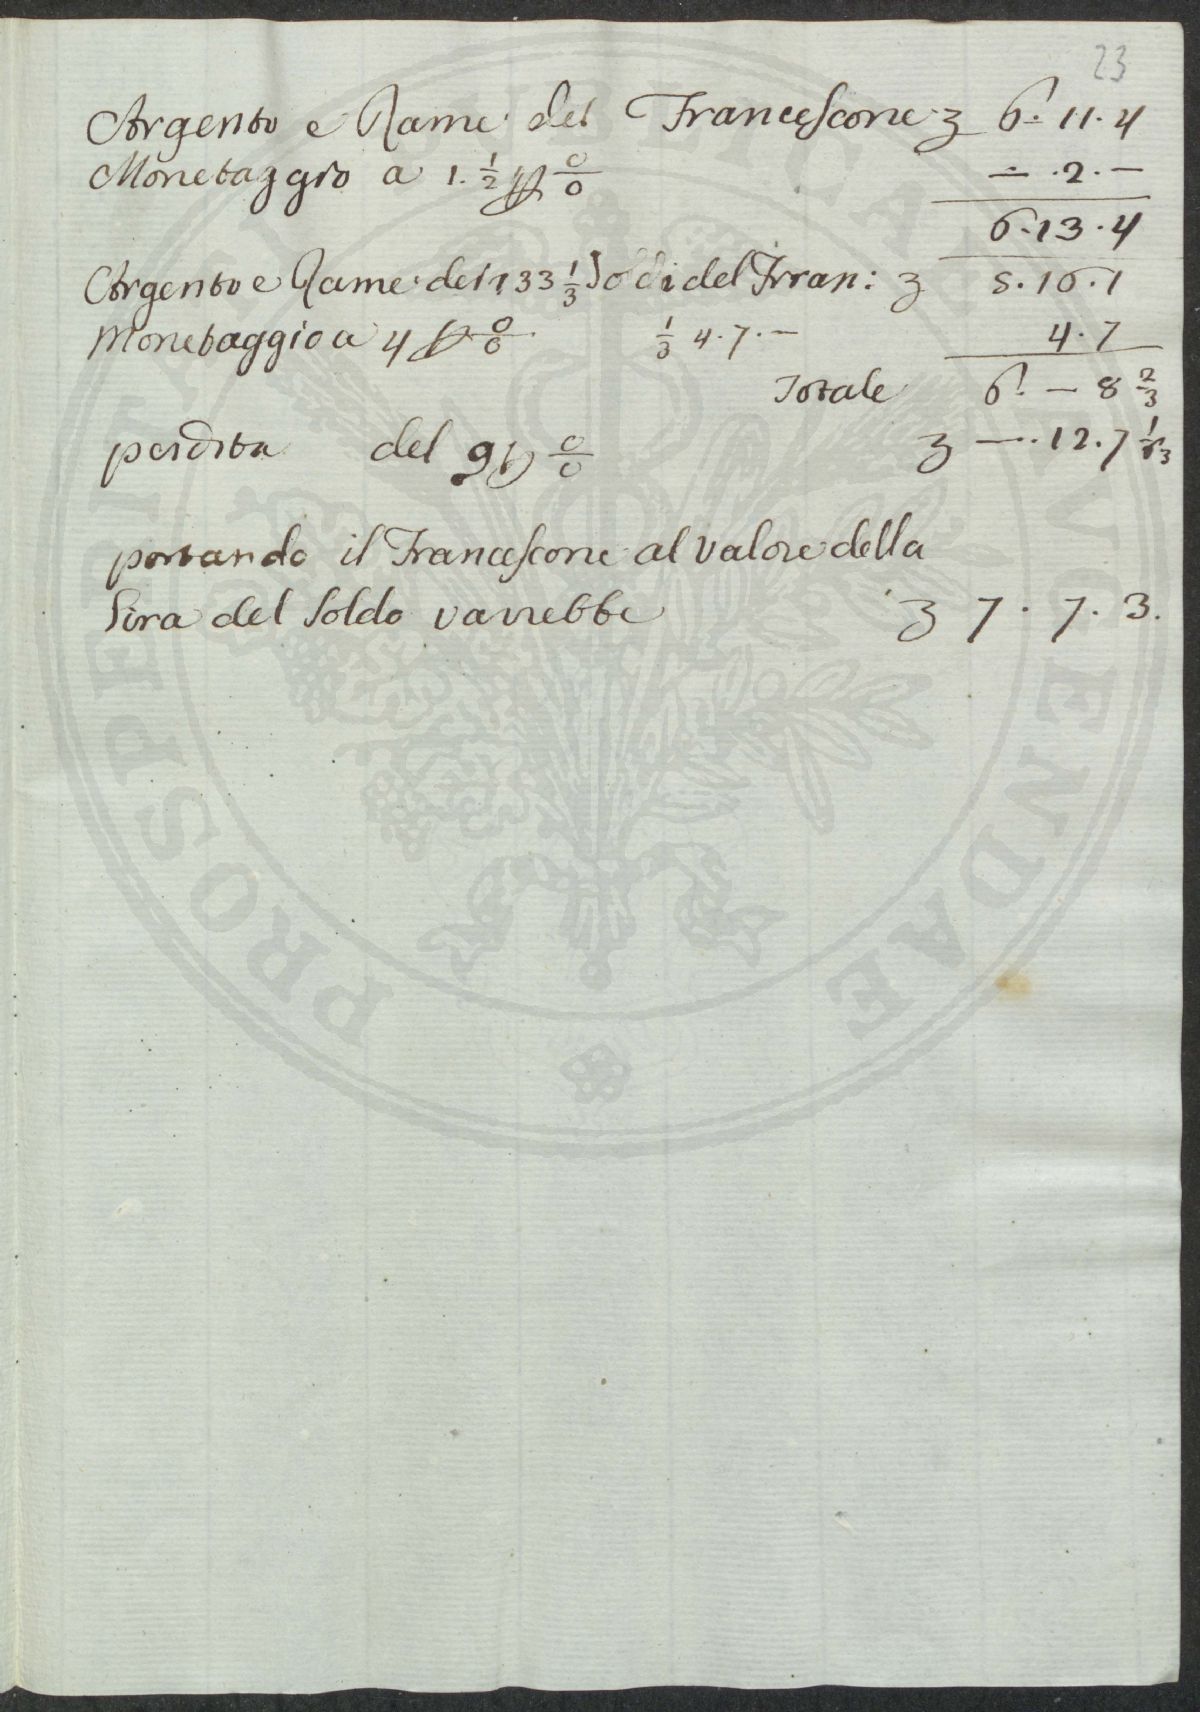 23
Argento e Rame del Francescone 6. 11. 4
Monetaggio a 1. 1/2 p 0/0 — . 2 . —
6. 13. 4
Argento e Rame dei 133 1/3 Soldi del Fran: 5. 16. 1
Monetaggio a 4 p 0/0 1/3 4. 7. — 4. 7
Totale 6. — 8 2/3
perdita del 9 p 0/0 — . 12. 7 1/3
portando il Francescone al valore della
Lira del Soldo varrebbe 7. 7. 3.
PROSPERITATI PUBLICAE AUGENDAE